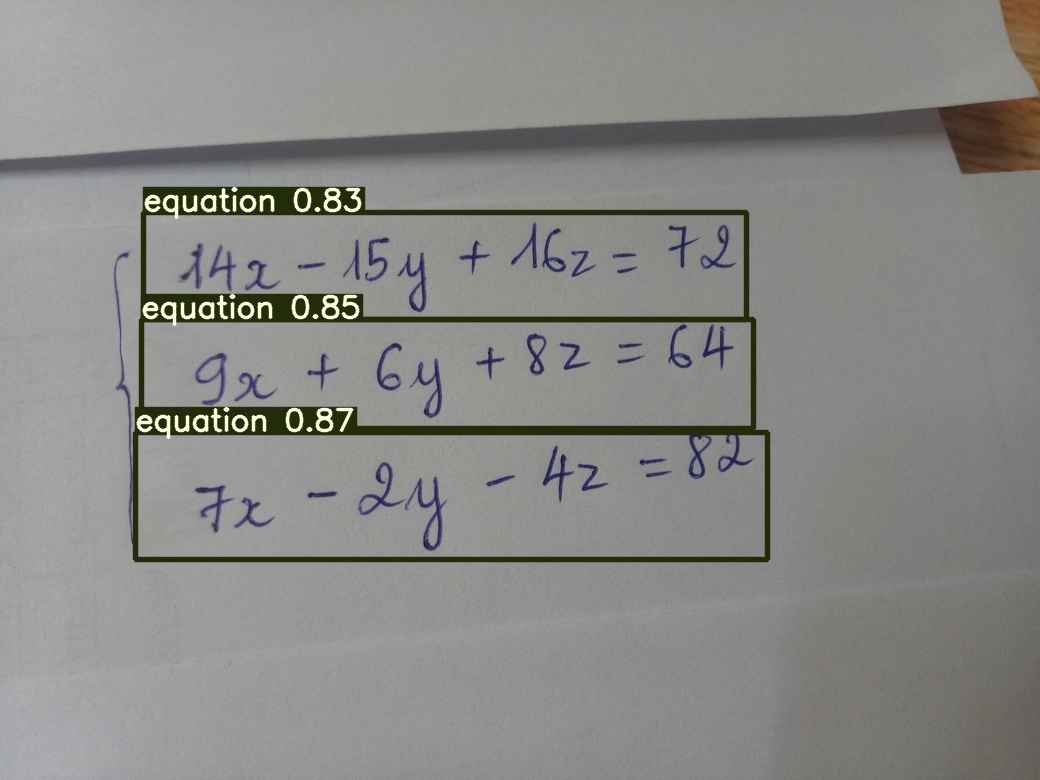 equation 0.83
14x - 15y + 16z = 72
equation 0.85
9x + 6y + 8z = 64
equation 0.87
7x - 2y - 4z = 82